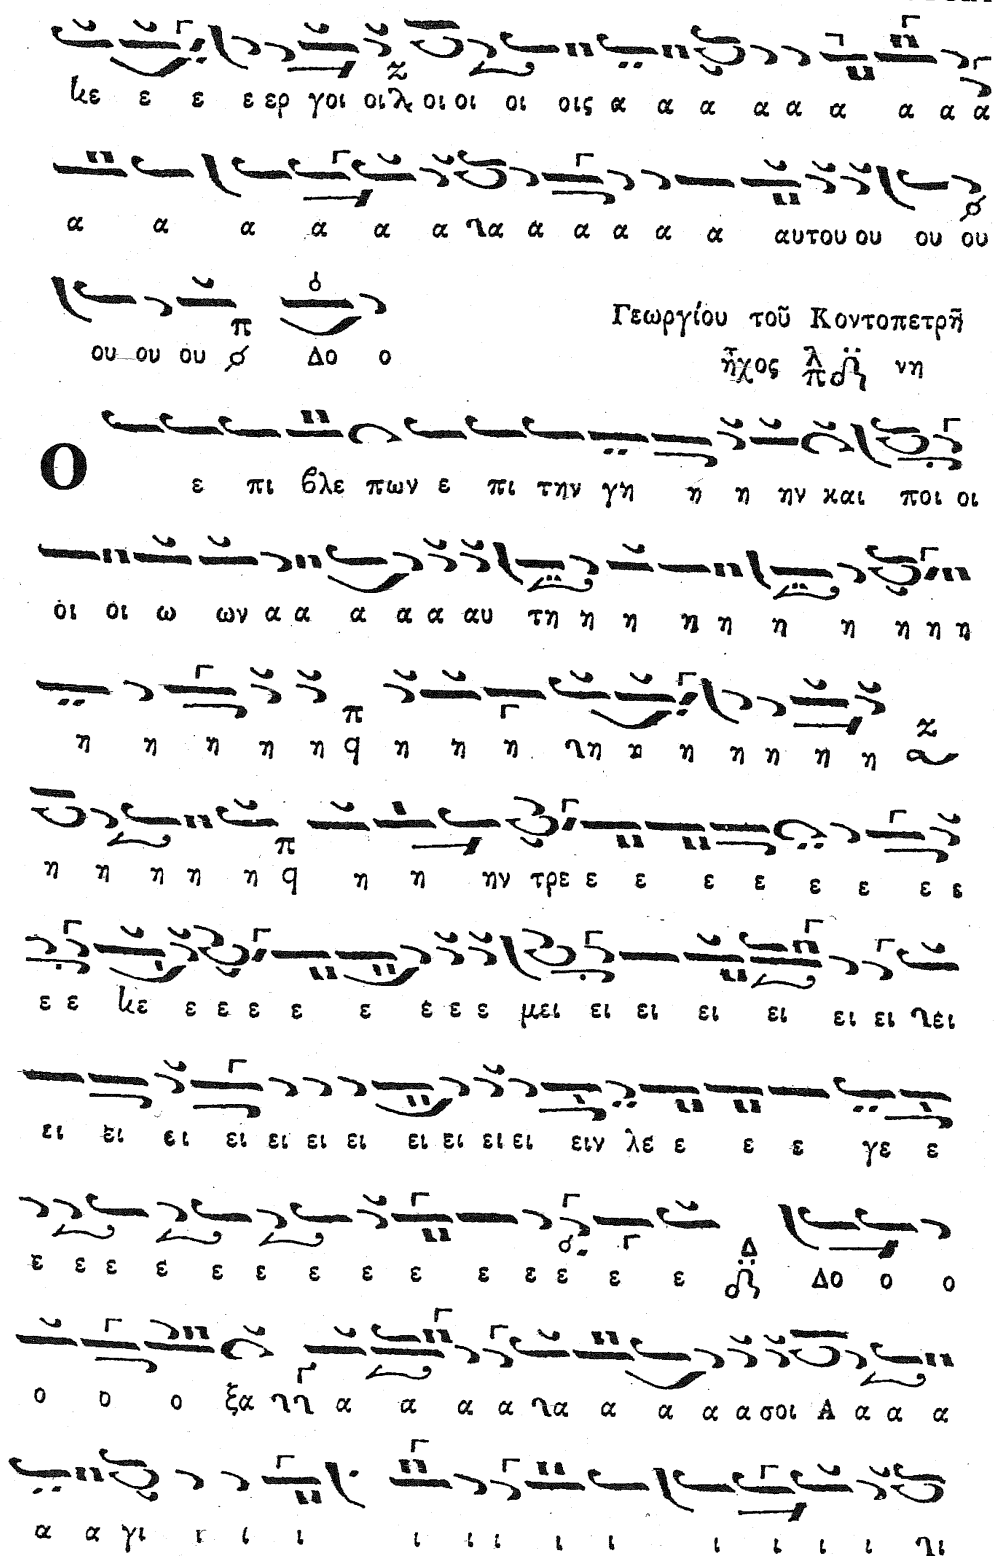 κε ε ε ε ερ γοι οι οι οι οι οις α α α α α α α α α
α α α α α α α α α α α α αυτου ου ου ου
ου ου ου Δο ο
Γεωργίου τοῦ Κοντοπετρῆ
ἦχος νη
Ο ε πι βλε πων ε πι την γη η η ην και ποι οι
οι οι ω ων α α α α α αυ τη η η η η η η η η η
η η η η η η η η η η η η η η η
η η η η η η η ην τρε ε ε ε ε ε ε ε ε
ε ε κε ε ε ε ε ε ε ε ε μει ει ει ει ει ει ει
ει ει ει ει ει ει ει ει ει ει ει ειν λε ε ε ε γε ε
ε ε ε ε ε ε ε ε ε ε ε ε ε ε Δο ο ο
ο ο ο ξα α α α α α α α α σοι Α α α α
α α γι ι ι ι ι ι ι ι ι ι ι ι ι